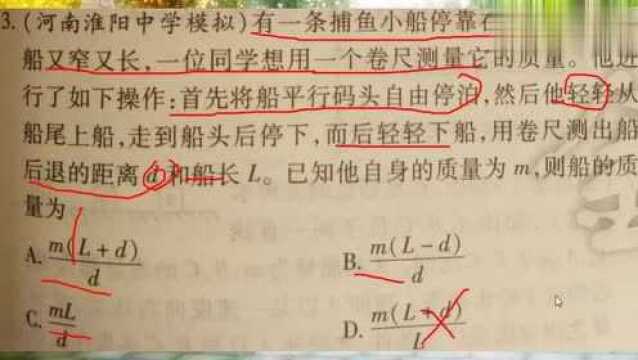 3.(河南淮阳中学模拟)有一条捕鱼小船停靠在
船又窄又长,一位同学想用一个卷尺测量它的质量。他进
行了如下操作:首先将船平行码头自由停泊,然后他轻轻从
船尾上船,走到船头后停下,而后轻轻下船,用卷尺测出船
后退的距离d和船长L。已知他自身的质量为m,则船的质
量为
A. m(L+d)/d
B. m(L-d)/d
C. mL/d
D. m(L+d)/L